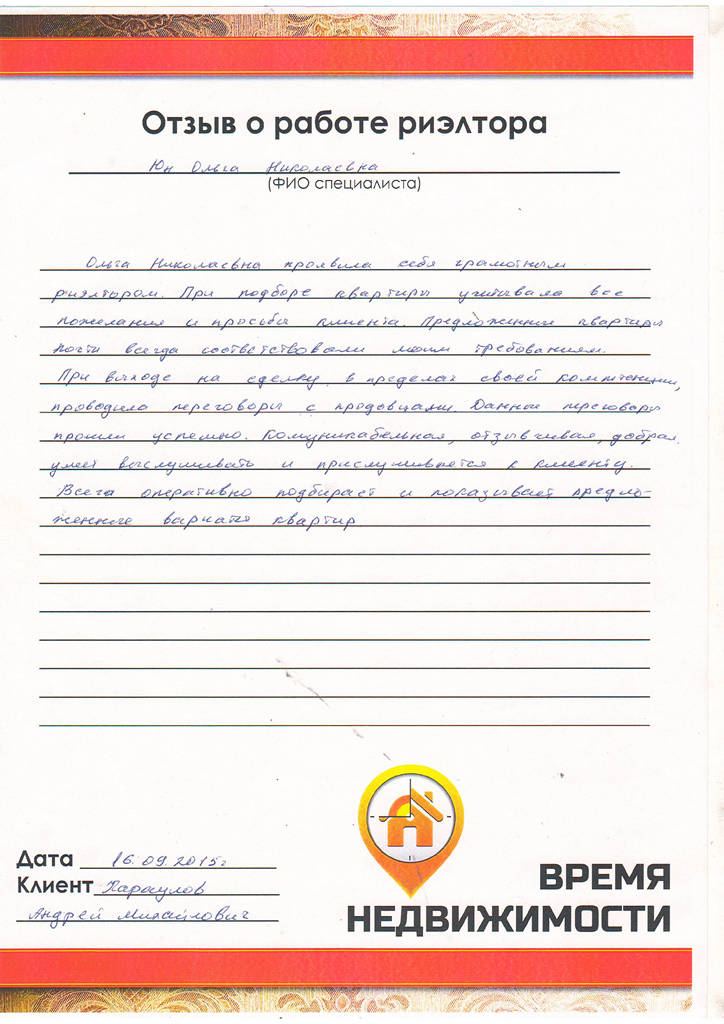 Отзыв о работе риэлтора
Юн Ольга Николаевна
(ФИО специалиста)
Ольга Николаевна проявила себя грамотным
риэлтором. При подборе квартиры учитывала все
пожелания и просьбы клиента. Предложенные квартиры
почти всегда соответствовали моим требованиям.
При выходе на сделку, в пределах своей компетенции,
проводила переговоры с продавцами. Данные переговоры
прошли успешно. Комуникабельная, отзывчивая, добрая,
умеет выслушивать и прислушивается к клиенту.
Всега оперативно подбирает и показывает предло-
женные варианты квартир
Дата 16.09.2015г
Клиент Караулов
Андрей Михайлович
ВРЕМЯ
НЕДВИЖИМОСТИ